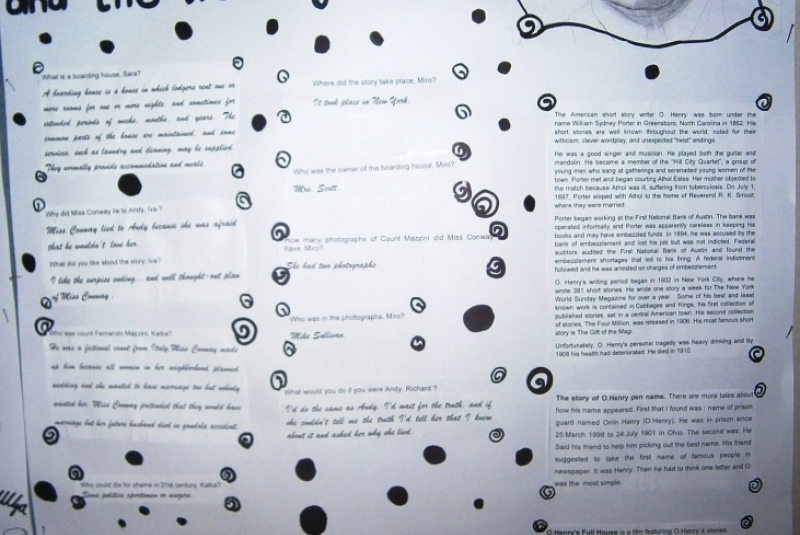 and the
What is a boarding house, Sara?
A boarding house is a house in which lodgers rent one or
more rooms for one or more nights, and sometimes for
extended periods of weeks, months, and years. The
common parts of the house are maintained, and some
services, such as laundry and cleaning, may be supplied.
They normally provide accommodation and meals.
Why did Miss Conway lie to Andy, Iva ?
Miss Conway lied to Andy because she was afraid
that he wouldn't love her.
What did you like about the story, Iva?
I like the surpise ending... and well thought-out plan
of Miss Conway.
Who was count Fernando Mazzini, Katka?
He was a fictional count from Italy. Miss Conway made
up him because all women in her neighborhood planned
wedding and she wanted to have marriage too but nobody
wanted her. Miss Conway pretended that they would have
marriage but her future husband died in gondola accident.
Who could die for shame in 21st century, Katka?
Some politics, sportsmen or singers.
Where did the story take place, Miro?
It took place in New York.
Who was the owner of the boarding house, Miro?
Mrs. Scott
How many photographs of Count Mazzini did Miss Conway
have, Miro?
She had two photographs.
Who was in the photographs, Miro?
Mike Sullivan.
What would you do if you were Andy, Richard ?
I'd do the same as Andy. I'd wait for the truth, and if
she couldn't tell me the truth I'd tell her that I knew
about it and asked her why she lied.
The American short story writer O. Henry was born under the
name William Sydney Porter in Greensboro, North Carolina in 1862. His
short stories are well known throughout the world, noted for their
witticism, clever wordplay, and unexpected "twist" endings.
He was a good singer and musician. He played both the guitar and
mandolin. He became a member of the "Hill City Quartet", a group of
young men who sang at gatherings and serenaded young women of the
town. Porter met and began courting Athol Estes. Her mother objected to
the match because Athol was ill, suffering from tuberculosis. On July 1,
1887, Porter eloped with Athol to the home of Reverend R. K. Smoot,
where they were married.
Porter began working at the First National Bank of Austin. The bank was
operated informally and Porter was apparently careless in keeping his
books and may have embezzled funds. In 1894, he was accused by the
bank of embezzlement and lost his job but was not indicted. Federal
auditors audited the First National Bank of Austin and found the
embezzlement shortages that led to his firing. A federal indictment
followed and he was arrested on charges of embezzlement.
O. Henry's writing period began in 1902 in New York City, where he
wrote 381 short stories. He wrote one story a week for The New York
World Sunday Magazine for over a year. Some of his best and least
known work is contained in Cabbages and Kings, his first collection of
published stories, set in a central American town. His second collection
of stories, The Four Million, was released in 1906. His most famous short
story is The Gift of the Magi.
Unfortunately, O. Henry's personal tragedy was heavy drinking and by
1908 his health had deteriorated. He died in 1910.
The story of O.Henry pen name. There are more tales about
how his name appeared. First that I found was : name of prison
guard named Orrin Henry (O.Henry). He was in prison since
25.March 1998 to 24.July 1901 in Ohio. The second was: He
Said his friend to help him picking out the best name. His friend
suggested to take the first name of famous people in
newspaper. It was Henry. Then he had to think one letter and O
was the most simple.
O.Henry's Full House is a film featuring O.Henry's stories